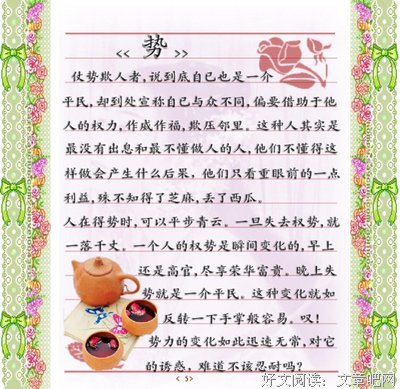 << 势 >>
仗势欺人者,说到底自已也是一介
平民,却到处宣称自已与众不同,偏要借助于他
人的权力,作威作福,欺压邻里。这种人其实是
最没有出息和最不懂做人的人,他们不懂得这
样做会产生什么后果,他们只看重眼前的一点
利益,殊不知得了芝麻,丢了西瓜。
人在得势时,可以平步青云。一旦失去权势,就
一落千丈。一个人的权势是瞬间变化的,早上
还是高官,尽享荣华富贵。晚上失
势就是一介平民。这种变化就如
反转一下手掌般容易。叹!
势力的变化如此迅速无常,对它
的诱惑,难道不该忍耐吗?
< 5>
好文阅读:文章吧网